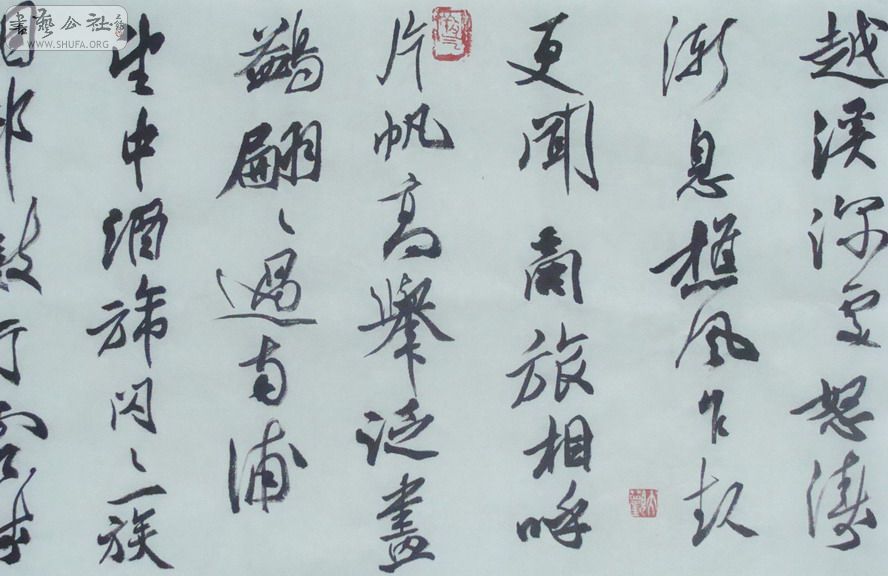 越溪深處怒濤
漸息樵風乍起
更聞商旅相呼
片帆高舉泛畫
鷁翩〻過南浦
望中酒旆閃〻一簇
書藝公社
WWW.SHUFA.ORG